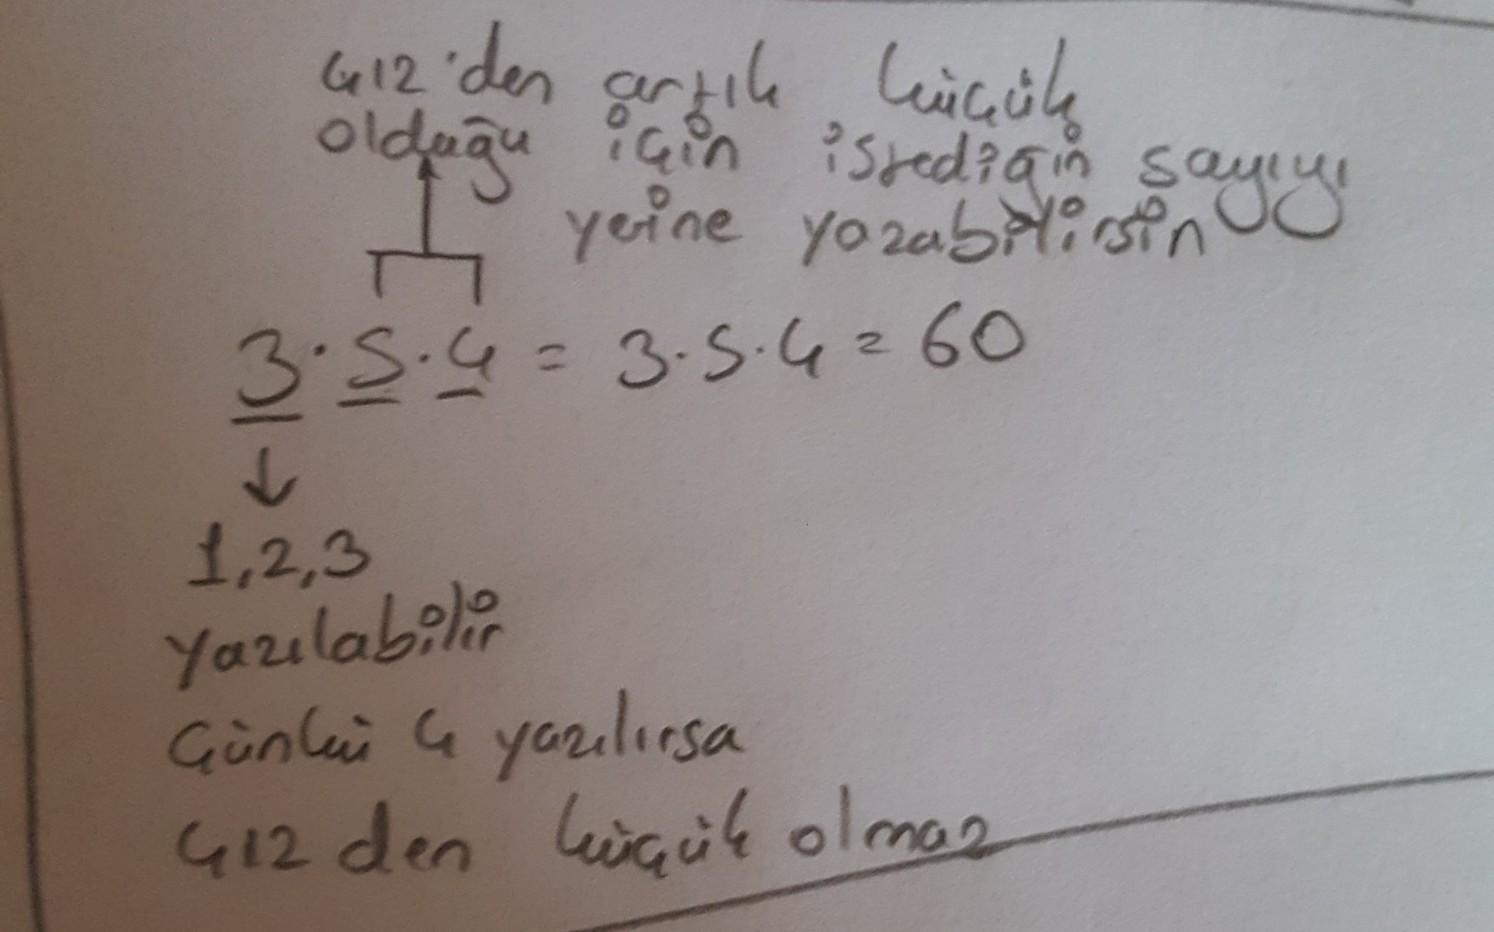 412'den artık küçük
olduğu için istediğin sayıyı
yerine yazabilirsin
3 · 5 · 4 = 3 · 5 · 4 = 60
↓
1, 2, 3
yazılabilir
Çünkü 4 yazılırsa
412 den küçük olmaz